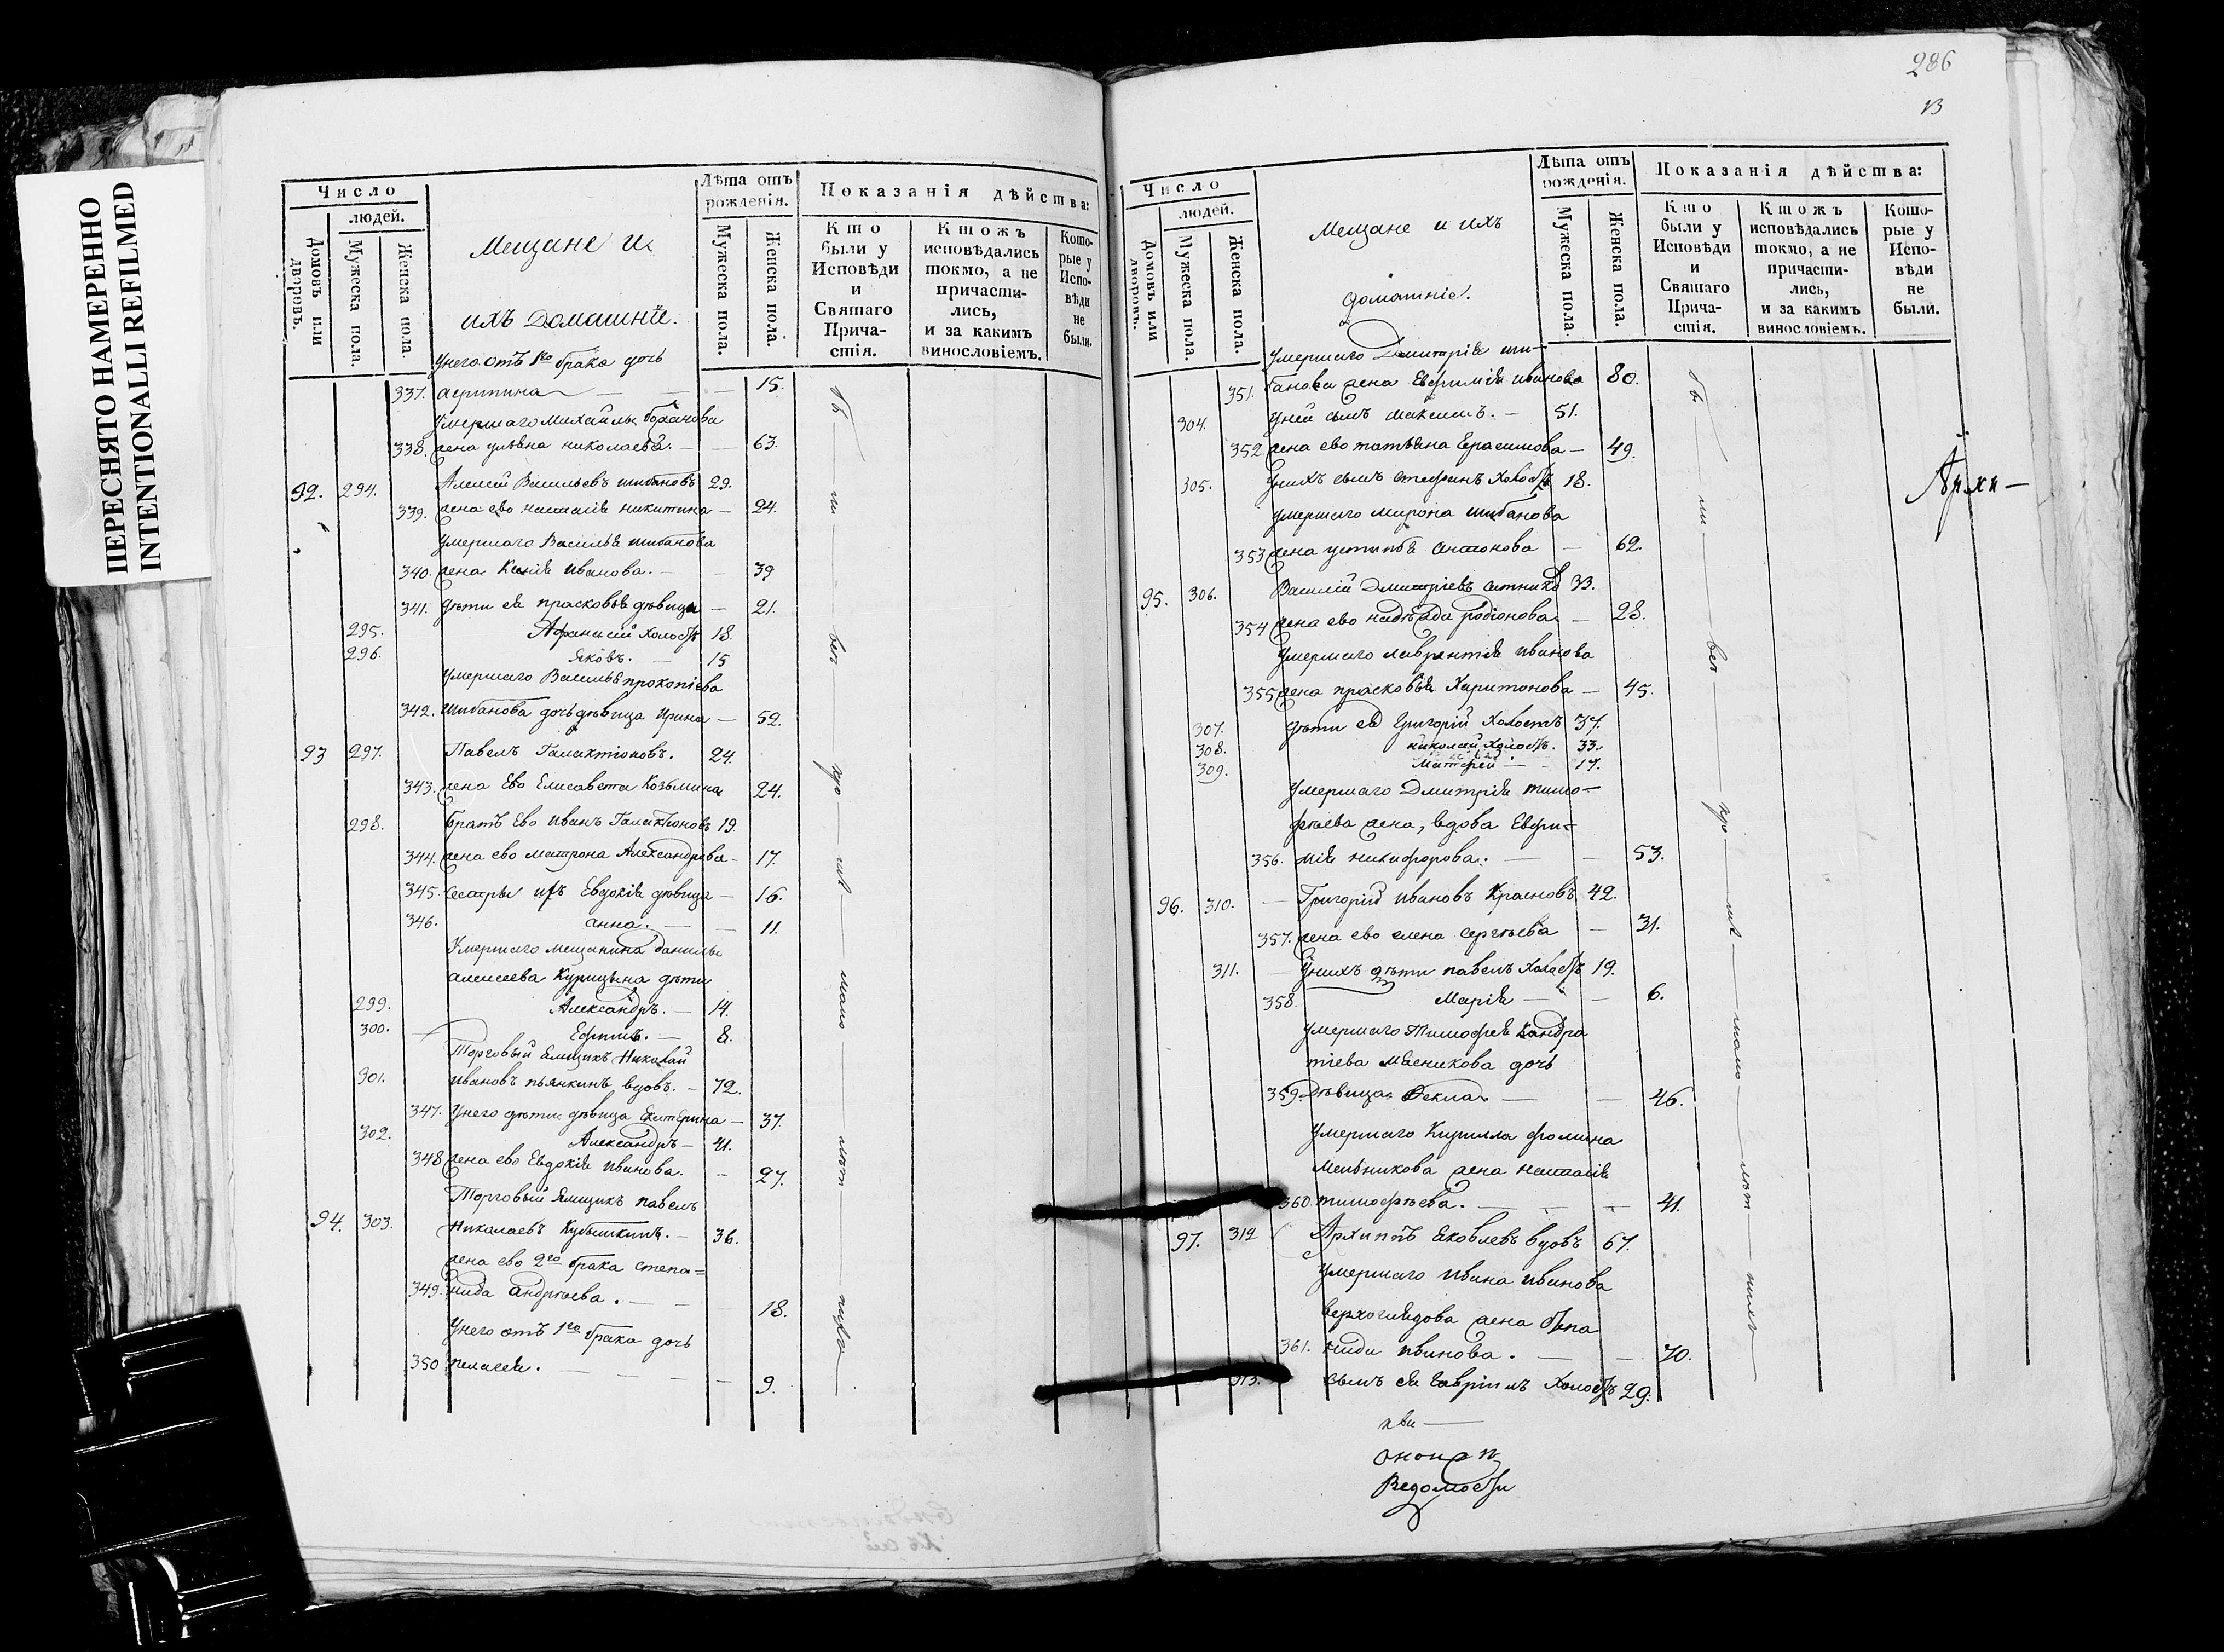 ПЕРЕСНЯТО НАМЕРЕННО
INTENTIONALLI REFILMED
Число
людей.
Домовъ или дворовъ.
Мужеска пола.
Женска пола.
Мещане и
ихъ Домашнїе.
Лѣта отъ рожденія.
Мужеска пола.
Женска пола.
Показанія дѣйства:
Кто были у Исповѣди и Святаго Причастія.
Ктожъ исповѣдались токмо, а не причастились, и за какимъ винословіемъ.
Которые у Исповѣди не были.
Унего отъ 1го брака дочь
337. 15.
умершаго Михайлы
338. жена улѣяна николаева. — 63.
92. 294. Алексѣй Васильевъ шибановъ 29.
339. жена ево наталія никитина — 24.
умершаго Василья шибанова
340. жена Ксенія иванова. — 39
341. дѣти ея прасковья дѣвица — 21.
295. Афанасій Холостъ 18.
296. яковъ. — 15
умершаго Василья прокопіева
342. шибанова дочь дѣвица ирина — 52.
93 297. Павелъ Галактіоновъ. 24.
343. жена Ево Елисавета Козьмина 24.
298. братъ Ево иванъ Галактіоновъ 19.
344. жена ево матрона Александрова — 17.
345. Сестры ихъ Евдокія дѣвица — 16.
346. анна. — 11.
Умершаго мещанина данилы
алексеева Курицына дѣти
299. Александръ. — 14.
300. Ефимъ. — 8.
Торговый ямщикъ Николай
301. ивановъ пьянкинъ вдовъ. — 72.
347. Унего дѣти дѣвица Екатерина — 37.
302. Александръ — 41.
348 жена ево Евдокія иванова. — 27.
Торговый ямщикъ павелъ
94. 303. Николаевъ Кубышкинъ. — 36.
жена ево 2го брака степа=
349. нида андрѣева. — 18.
Унего отъ 1го брака дочь
350 пелагея. — 9.
286
13
Число
людей.
Домовъ или дворовъ.
Мужеска пола.
Женска пола.
Мещане и ихъ
домашніе.
Лѣта отъ рожденія.
Мужеска пола.
Женска пола.
Показанія дѣйства:
Кто были у Исповѣди и Святаго Причастія.
Ктожъ исповѣдались токмо, а не причастились, и за какимъ винословіемъ.
Которые у Исповѣди не были.
Умершаго Димитрія ши-
351. банова жена Евфимія иванова 80.
304. уней сынъ максимъ. — 51.
352 жена ево татьяна Герасимова — 49.
305. Унихъ сынъ стефанъ Холостъ 18.
умершаго мирона шибанова
353 жена устинья антонова — 62.
95. 306. Василій Дмитріевъ ситниковъ 33.
354 жена ево надежда родіонова — 28.
Умершаго лаврентія иванова
355 жена прасковья Харитонова — 45.
307. дѣти ея Григорій Холостъ 37.
308. николай Холостъ. 33.
309. Матфей — 17.
Умершаго Дмитрія тимо-
фѣева жена, вдова Евфи=
356. мія никифорова. — 53.
96. 310. — Григорій ивановъ Красновъ 42.
357. жена ево елена сергѣева — 31.
311. Унихъ дѣти павелъ Холостъ 19.
358. Марія — 6.
Умершаго Тимофея кондра
тіева мясникова дочь
359. Дѣвица Фекла — 46.
Умершаго Кирилла фомина
Мельникова жена наталія
360. тимофѣева. — 41.
97. 312 Архиппъ Яковлевъ вдовъ 67.
Умершаго ивана иванова
верхоглядова жена степа
361. нида иванова. — 70.
313. сынъ ея Гавріилъ Холостъ 29.
Ведомости